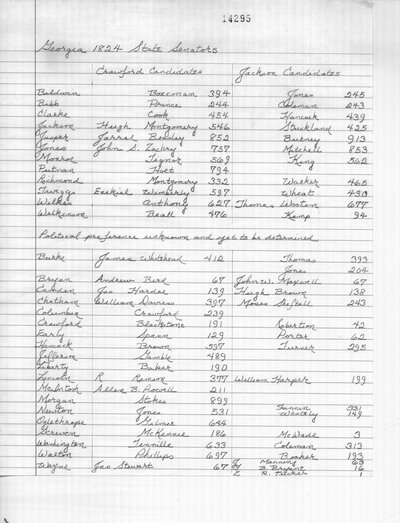 14295
Georgia 1824 State Senators
Crawford Candidates Jackson Candidates
Baldwin Bozeman 394 Jones 245
Bibb Prince 244 Coleman 243
Clarke Cook 454 Hancock 439
Jackson Hugh Montgomery 546 Strickland 425
Jasper Jarrel Beasley 852 Burney 913
Jones John S. Zachry 757 Mitchell 853
Monroe 569 King 562
Putnam Holt 794
Richmond Montgomery 332 Walker 465
Twiggs Ezekiel Wimberly 597 Wheat 430
Wilkes Anthony 627 Thomas Wooten 677
Wilkinson Beall 476 Kemp 94
Political preference unknown and yet to be determined
Burke James Whitehead 410 Thomas 393
Jones 204
Bryan Andrew Bird 67 John W. Maxwell 67
Camden Jas Hardee 139 Hugh Brown 138
Chatham William Davies 397 Moses Sheftall 243
Columbia Crawford 239
Crawford Blackstone 191 Roberton 42
Early Spann 129 Porter 62
Hancock Brown 597 Turner 295
Jefferson Gamble 489
Liberty Baker 190
Lincoln R Remson 377 William Harper 199
McIntosh Allen B Powell 211
Morgan Stokes 899
Newton Jones 531 Fannin 331
Whatley 149
Oglethorpe Gilmer 644
Screven McKennie 186 McWade 3
Washington Tennille 633 Coleman 313
Walton Phillips 697 Booker 193
Wayne Jas Stewart 67 J Manning 63
B. Bryant 16
E R. 1